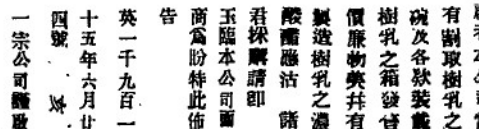 有割取樹乳之
碗及各欵裝載
樹乳之箱發售
價廉物美幷有
製造樹乳之濃
酸醋應沽 諸
君採購請卽
玉臨本公司面
商爲盼特此佈
告
英一千九百一
十五年六月廿
四號 亥
一宗公司謹啟